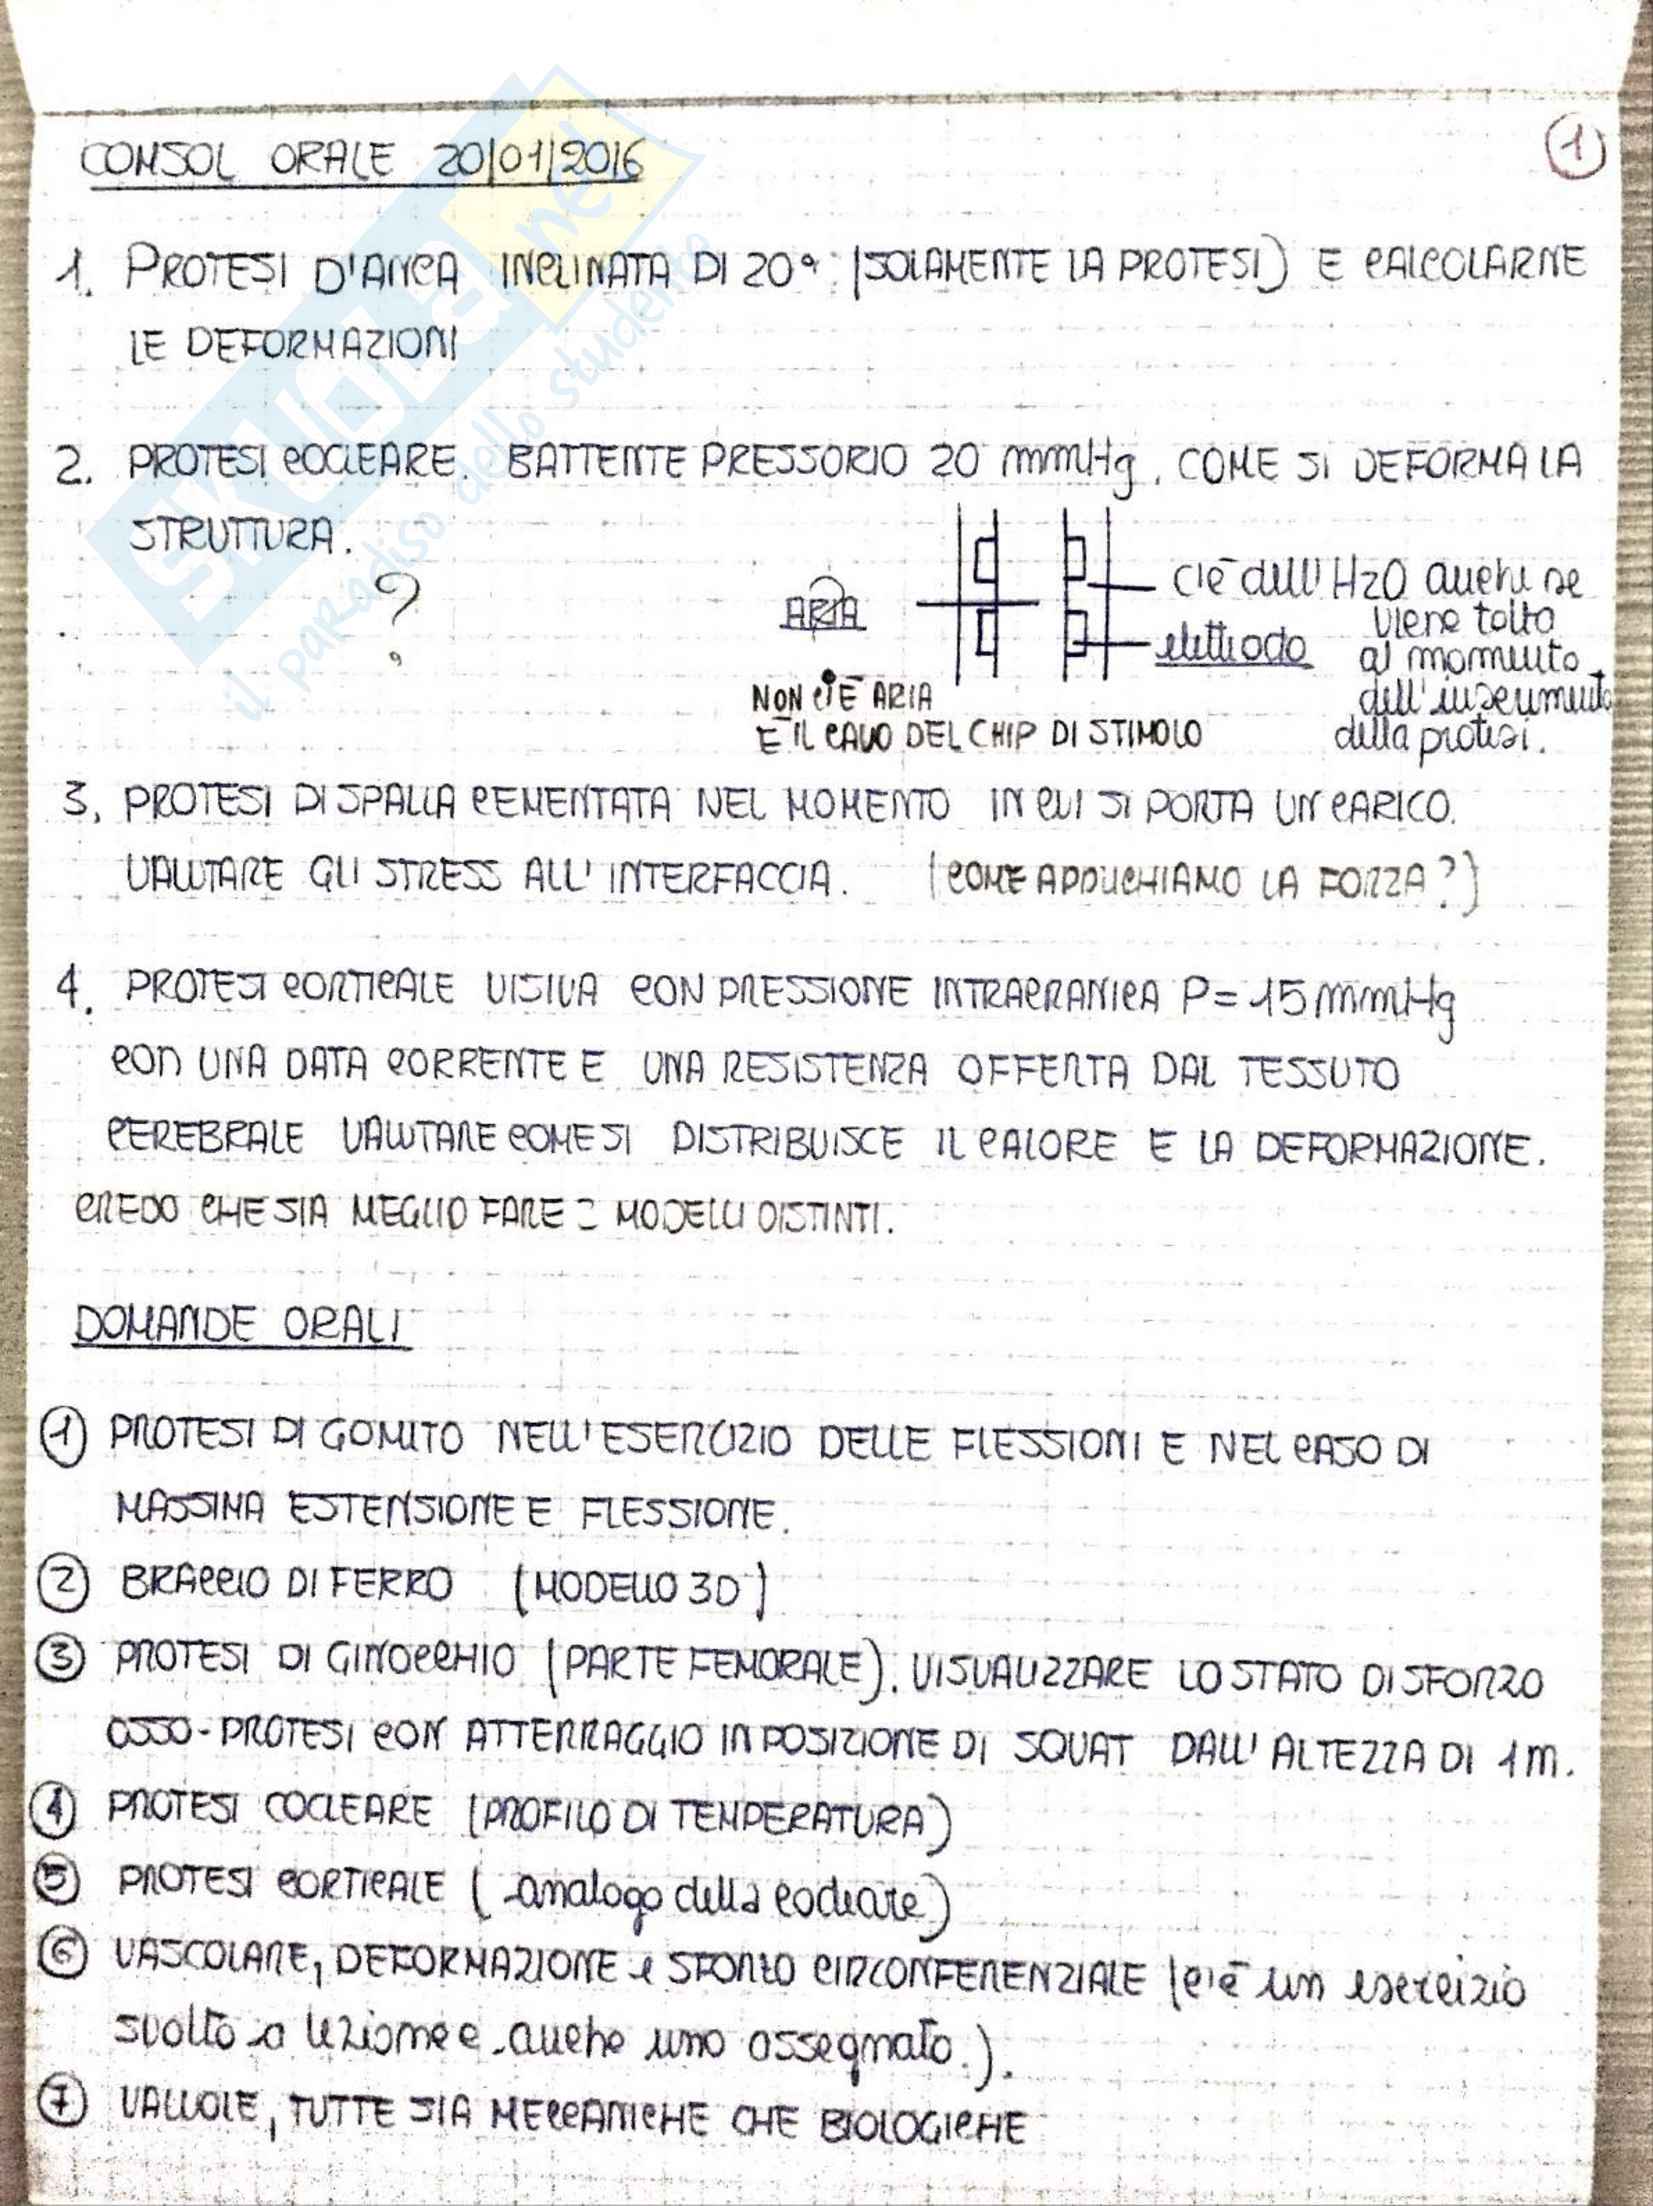 COMSOL ORALE 20/01/2016
1
1. PROTESI D'ANCA INCLINATA DI 20° (SOLAMENTE LA PROTESI) E CALCOLARNE
LE DEFORMAZIONI
2. PROTESI COCLEARE. BATTENTE PRESSORIO 20 mmHg. COME SI DEFORMA LA
STRUTTURA.
?
ARIA
C'è dell'H2O anche se
viene tolto
al momento
dell'inserimento
della protesi.
elettrodo
NON C'È ARIA
È IL CAVO DEL CHIP DI STIMOLO
3. PROTESI DI SPALLA CEMENTATA NEL MOMENTO IN CUI SI PORTA UN CARICO.
VALUTARE GLI STRESS ALL'INTERFACCIA. (COME APPLICHIAMO LA FORZA?)
4. PROTESI CORTICALE VISIVA CON PRESSIONE INTRACRANICA P=15mmHg
CON UNA DATA CORRENTE E UNA RESISTENZA OFFERTA DAL TESSUTO
CEREBRALE VALUTARE COME SI DISTRIBUISCE IL CALORE E LA DEFORMAZIONE.
CREDO CHE SIA MEGLIO FARE 2 MODELLI DISTINTI.
DOMANDE ORALI
1 PROTESI DI GOMITO NELL'ESERCIZIO DELLE FLESSIONI E NEL CASO DI
MASSIMA ESTENSIONE E FLESSIONE.
2 BRACCIO DI FERRO (MODELLO 3D)
3 PROTESI DI GINOCCHIO (PARTE FEMORALE). VISUALIZZARE LO STATO DI SFORZO
OSSO-PROTESI CON ATTERRAGGIO IN POSIZIONE DI SQUAT DALL'ALTEZZA DI 1m.
4 PROTESI COCLEARE (PROFILO DI TEMPERATURA)
5 PROTESI CORTICALE (analogo della cocleare)
6 VASCOLARE, DEFORMAZIONE e SFORZO CIRCONFERENZIALE (c'è un esercizio
svolto a lezione e anche uno assegnato.).
7 VALVOLE, TUTTE SIA MECCANICHE CHE BIOLOGICHE
SKUOLA.net
il paradiso dello studente